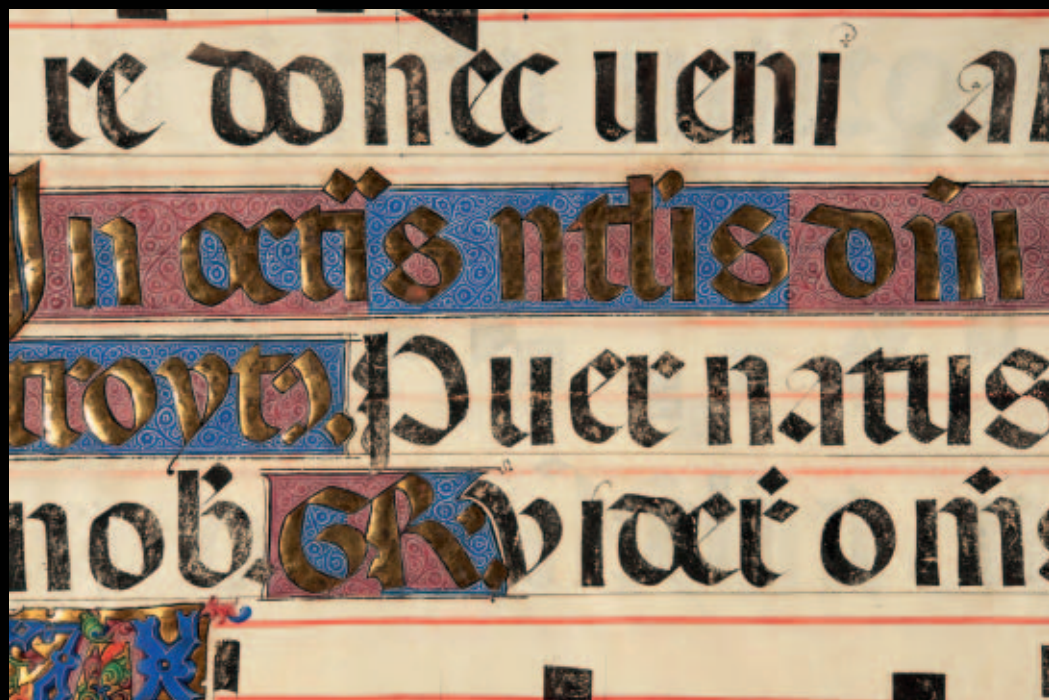 re donec ueni
In octis ntlis dni
introyt. Puer natus
nob. GR. viderī om̄s